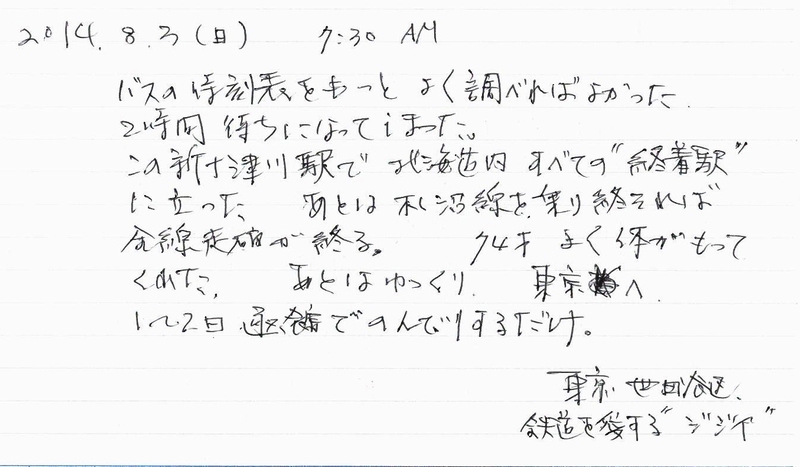 2014. 8. 3 (日) 7:30 AM
バスの時刻表をもっと よく調べればよかった.
2時間 待ちになってしまった。
この新十津川駅で 北海道内 すべての"終着駅"
に立った. あとは 札沼線を乗り終えれば
全線走破が終る。 74才 よく体がもって
くれた. あとはゆっくり. 東京 へ.
1〜2日 でのんびりするだけ。
東京 世田谷区.
鉄道を愛する"ジジイ"